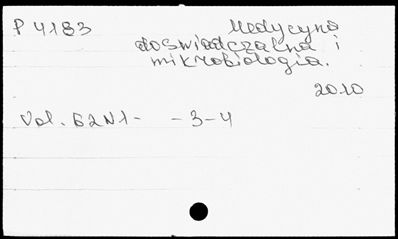 P 4183 Medycyna
doświadczalna i
mikrobiologia.
2010
Vol. 62 N1- -3-4